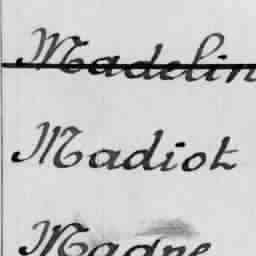 Madelin
Madiot
Madre